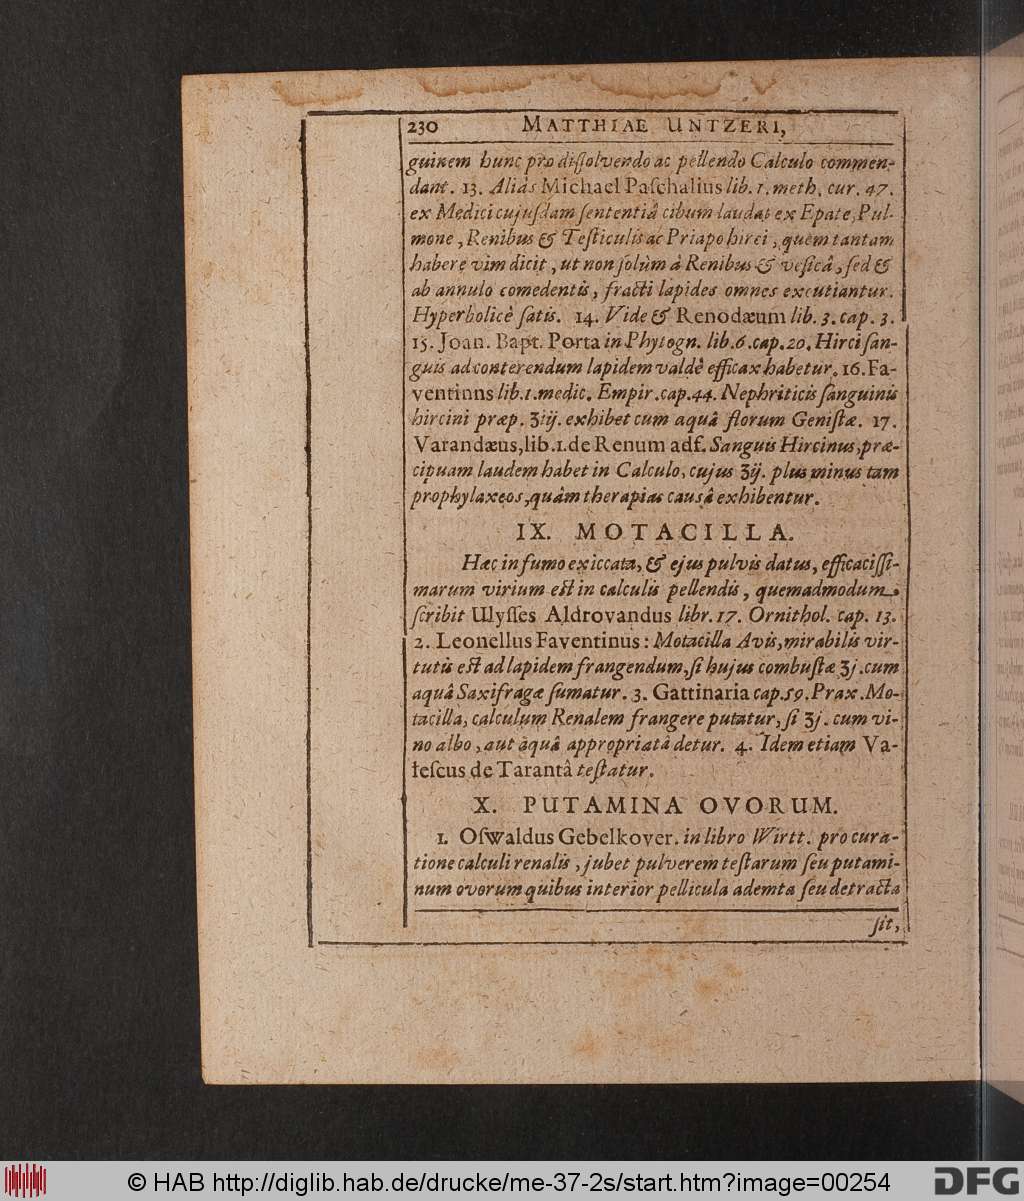 230 MATTHIAE UNTZERI,
guinem hunc pro dissolvendo ac pellendo Calculo commen-
dant. 13. Aliàs Michael Paschalius lib. 1. meth. cur. 47.
ex Medici cujusdam sententiâ cibum laudat ex Epate, Pul-
mone, Renibus & Testiculis ac Priapo hirci, quem tantam
habere vim dicit, ut non solùm à Renibus & vesicâ, sed &
ab annulo comedentis, fracti lapides omnes excutiantur.
Hyperbolicè satis. 14. Vide & Renodæum lib. 3. cap. 3.
15. Joan. Bapt. Porta in Phytogn. lib. 6. cap. 20. Hirci san-
guis ad conterendum lapidem valdè efficax habetur. 16. Fa-
ventinus lib. 1. medic. Empir. cap. 44. Nephriticis sanguinis
hircini præp. ʒiij. exhibet cum aquâ florum Genistæ. 17.
Varandæus, lib. 1. de Renum adf. Sanguis Hircinus, præ-
cipuam laudem habet in Calculo, cujus ʒij. plus minus tam
prophylaxeos, quâm therapias causâ exhibentur.
IX. MOTACILLA.
Hæc in fumo exiccata, & ejus pulvis datus, efficacissi-
marum virium est in calculis pellendis, quemadmodum
scribit Ulysses Aldrovandus libr. 17. Ornithol. cap. 13.
2. Leonellus Faventinus: Motacilla Avis, mirabilis vir-
tutis est ad lapidem frangendum, si hujus combustæ ʒj. cum
aquâ Saxifragæ sumatur. 3. Gattinaria cap. 59. Prax. Mo-
tacilla, calculum Renalem frangere putatur, si ʒj. cum vi-
no albo, aut aquâ appropriatâ detur. 4. Idem etiam Va-
lescus de Tarantâ testatur.
X. PUTAMINA OVORUM.
1. Oswaldus Gebelkover. in libro Wirtt. pro cura-
tione calculi renalis, jubet pulverem testarum seu putami-
num ovorum quibus interior pellicula ademta seu detracta
sit,
© HAB http://diglib.hab.de/drucke/me-37-2s/start.htm?image=00254
DFG